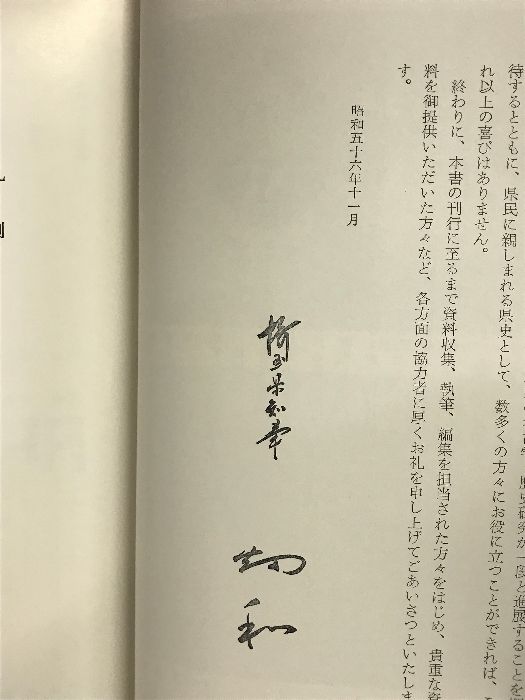 待するとともに、県民に親しまれる県史として、数多くの方々にお役に立つことができれば、こ
れ以上の喜びはありません。
終わりに、本書の刊行に至るまで資料収集、執筆、編集を担当された方々をはじめ、貴重な資
料を御提供いただいた方々など、各方面の協力者に厚くお礼を申し上げてごあいさつといたしま
す。
昭和五十六年十一月
埼玉県知事
畑 和